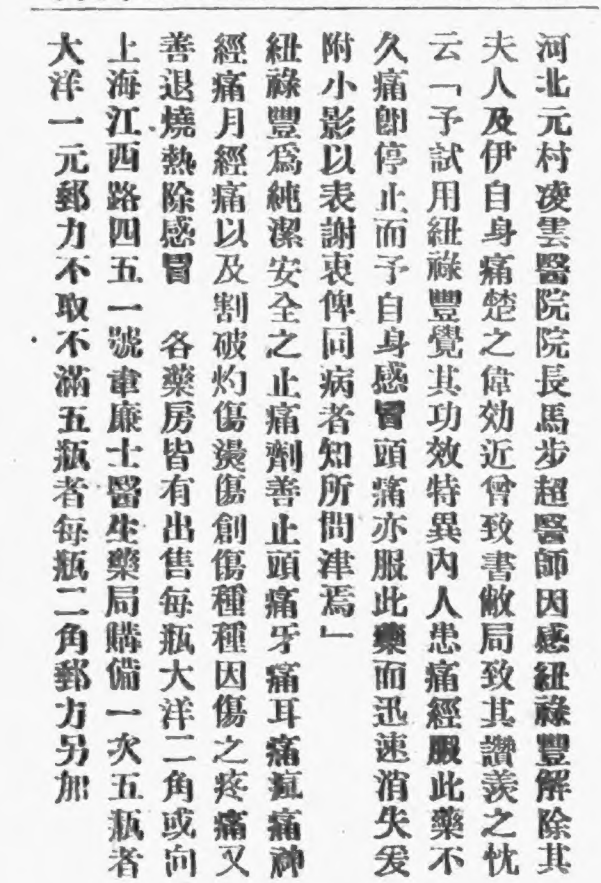 河北元村凌雲醫院院長馬步超醫師因感紐祿豐解除其
夫人及伊自身痛楚之偉効近曾致書敝局致其讚羨之忱
云「予試用紐祿豐覺其功效特異內人患痛經服此藥不
久痛卽停止而予自身感冒頭痛亦服此藥而迅速消失爰
附小影以表謝衷俾同病者知所問津焉」
紐祿豐爲純潔安全之止痛劑善止頭痛牙痛耳痛瘋痛神
經痛月經痛以及割破灼傷燙傷創傷種種因傷之疼痛又
善退燒熱除感冒　各藥房皆有出售每瓶大洋二角或向
上海江西路四五一號韋廉士醫生藥局購備一次五瓶者
大洋一元郵力不取不滿五瓶者每瓶二角郵力另加